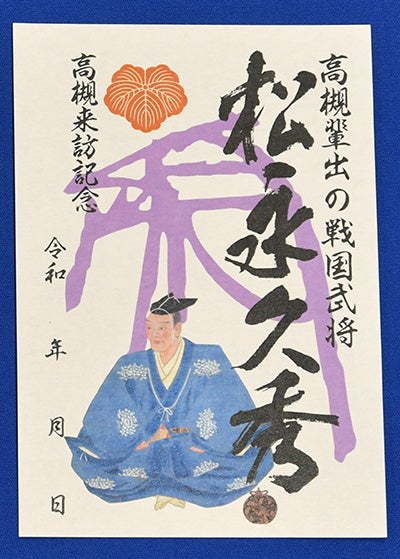 高槻輩出の戦国武将
松永久秀
高槻来訪記念
令和　年　月　日